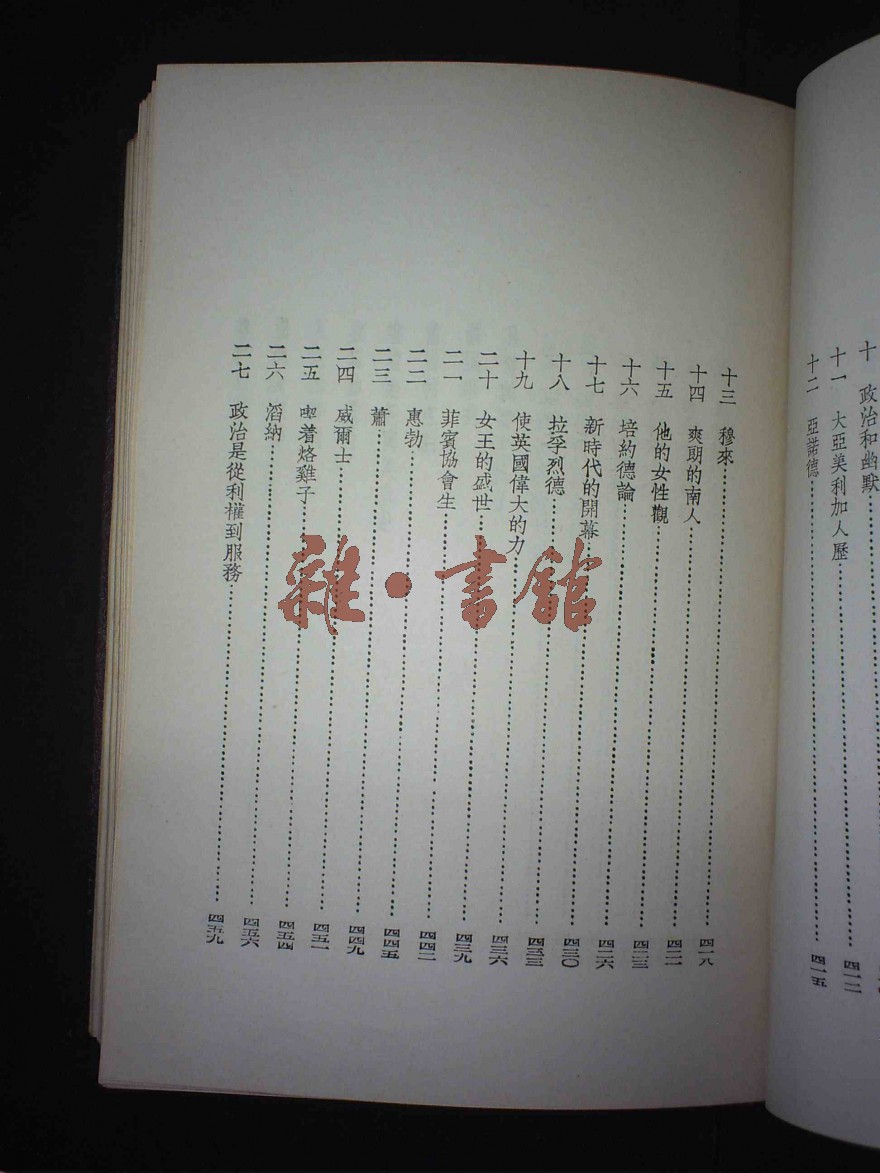 十 政治和幽默
十一 大亞美利加人歷……四一二
十二 亞諾德……四一五
十三 穆來……四一八
十四 爽朗的南人……四二一
十五 他的女性觀……四二三
十六 培約德論……四二六
十七 新時代的開幕……四三〇
十八 拉孚烈德……四三三
十九 使英國偉大的力……四三六
二十 女王的盛世……四三九
二一 菲賓協會生……四四二
二二 惠勃……四四五
二三 蕭……四四九
二四 威爾士……四五一
二五 喫着烙雞子……四五四
二六 滔納……四五六
二七 政治是從利權到服務……四五九
雜·書館